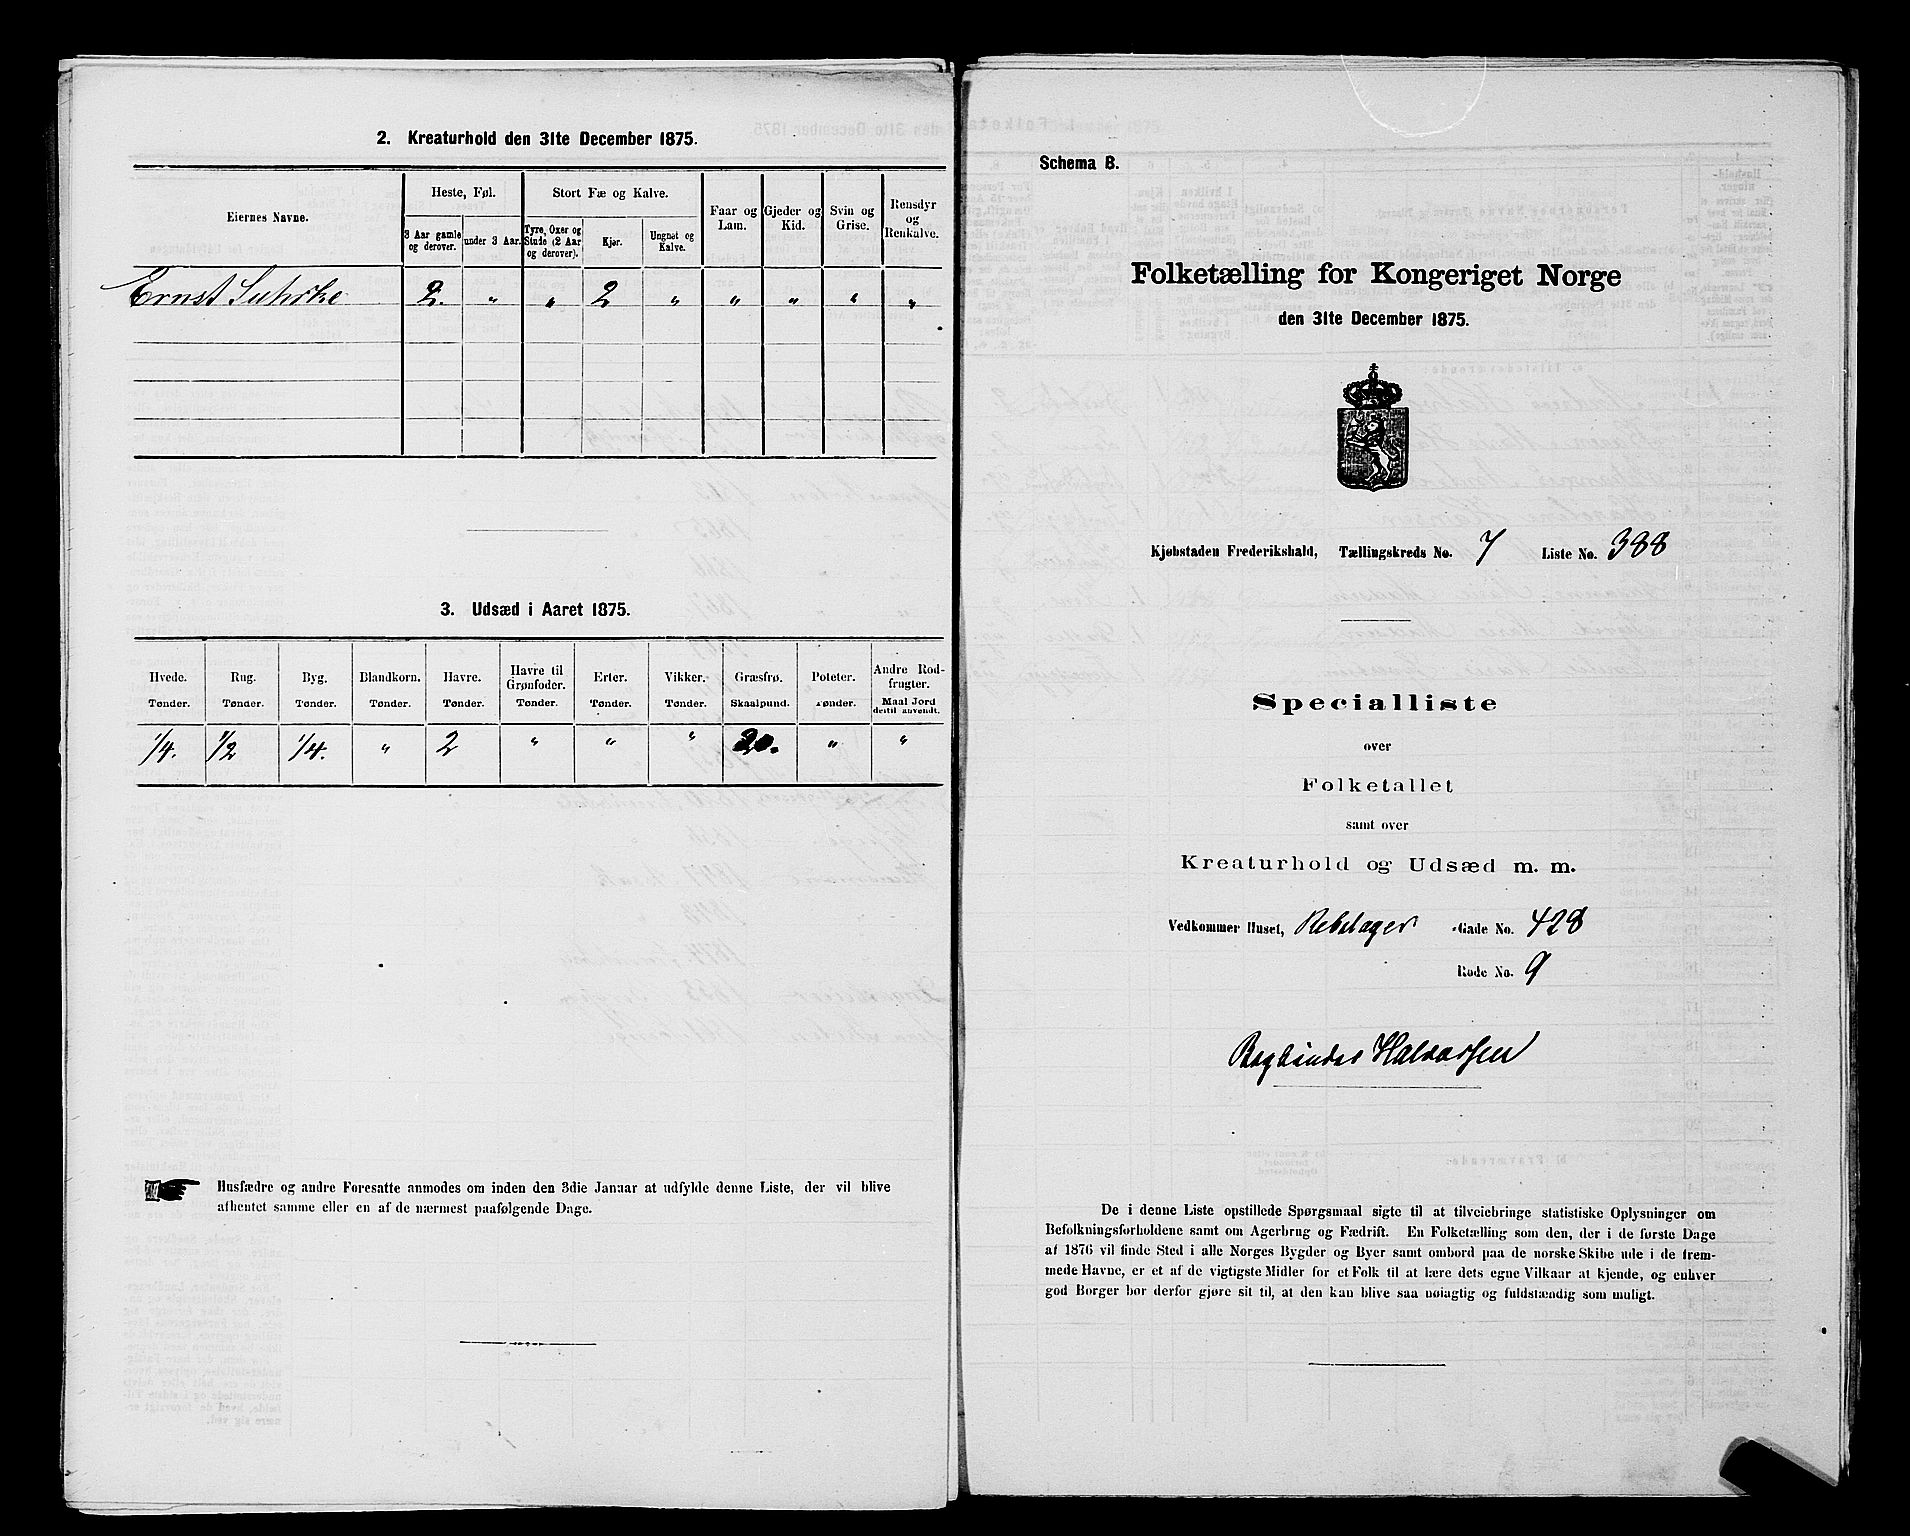 2. Kreaturhold den 31te December 1875.
Eiernes Navne.
Heste, Føl.
Stort Fæ og Kalve.
Faar og Lam.
Gjeder og Kid.
Svin og Grise.
Rensdyr og Renkalve.
3 Aar gamle og derover.
under 3 Aar.
Tyre, Oxer og Stude (2 Aar og derover).
Kjør.
Ungnøt og Kalve.
Ernst Suhrke 2. " " 2 " " " " "
3. Udsæd i Aaret 1875.
Hvede. Rug. Byg. Blandkorn. Havre. Havre til Grønfoder. Erter. Vikker. Græsfrø. Poteter. Andre Rodfrugter.
Tønder. Tønder. Tønder. Tønder. Tønder. Tønder. Tønder. Tønder. Skaalpund. Tønder. Maal Jord dertil anvendt.
1/4. 1/2 1/4. " 2 " " " 20. " "
Husfædre og andre Foresatte anmodes om inden den 3die Januar at udfylde denne Liste, der vil blive
afhentet samme eller en af de nærmest paafølgende Dage.
Schema B.
Folketælling for Kongeriget Norge
den 31te December 1875.
Kjøbstaden Frederikshald, Tællingskreds No. 7 Liste No. 388
Specialliste
over
Folketallet
samt over
Kreaturhold og Udsæd m. m.
Vedkommer Huset, Rebslager Gade No. 428
Rode No. 9
Bogbinder Halvorsen
De i denne Liste opstillede Spørgsmaal sigte til at tilveiebringe statistiske Oplysninger om
Befolkningsforholdene samt om Agerbrug og Fædrift. En Folketælling som den, der i de første Dage
af 1876 vil finde Sted i alle Norges Bygder og Byer samt ombord paa de norske Skibe ude i de frem-
mede Havne, er et af de vigtigste Midler for et Folk til at lære dets egne Vilkaar at kjende, og enhver
god Borger bør derfor gjøre sit til, at den kan blive saa nøiagtig og fuldstændig som muligt.